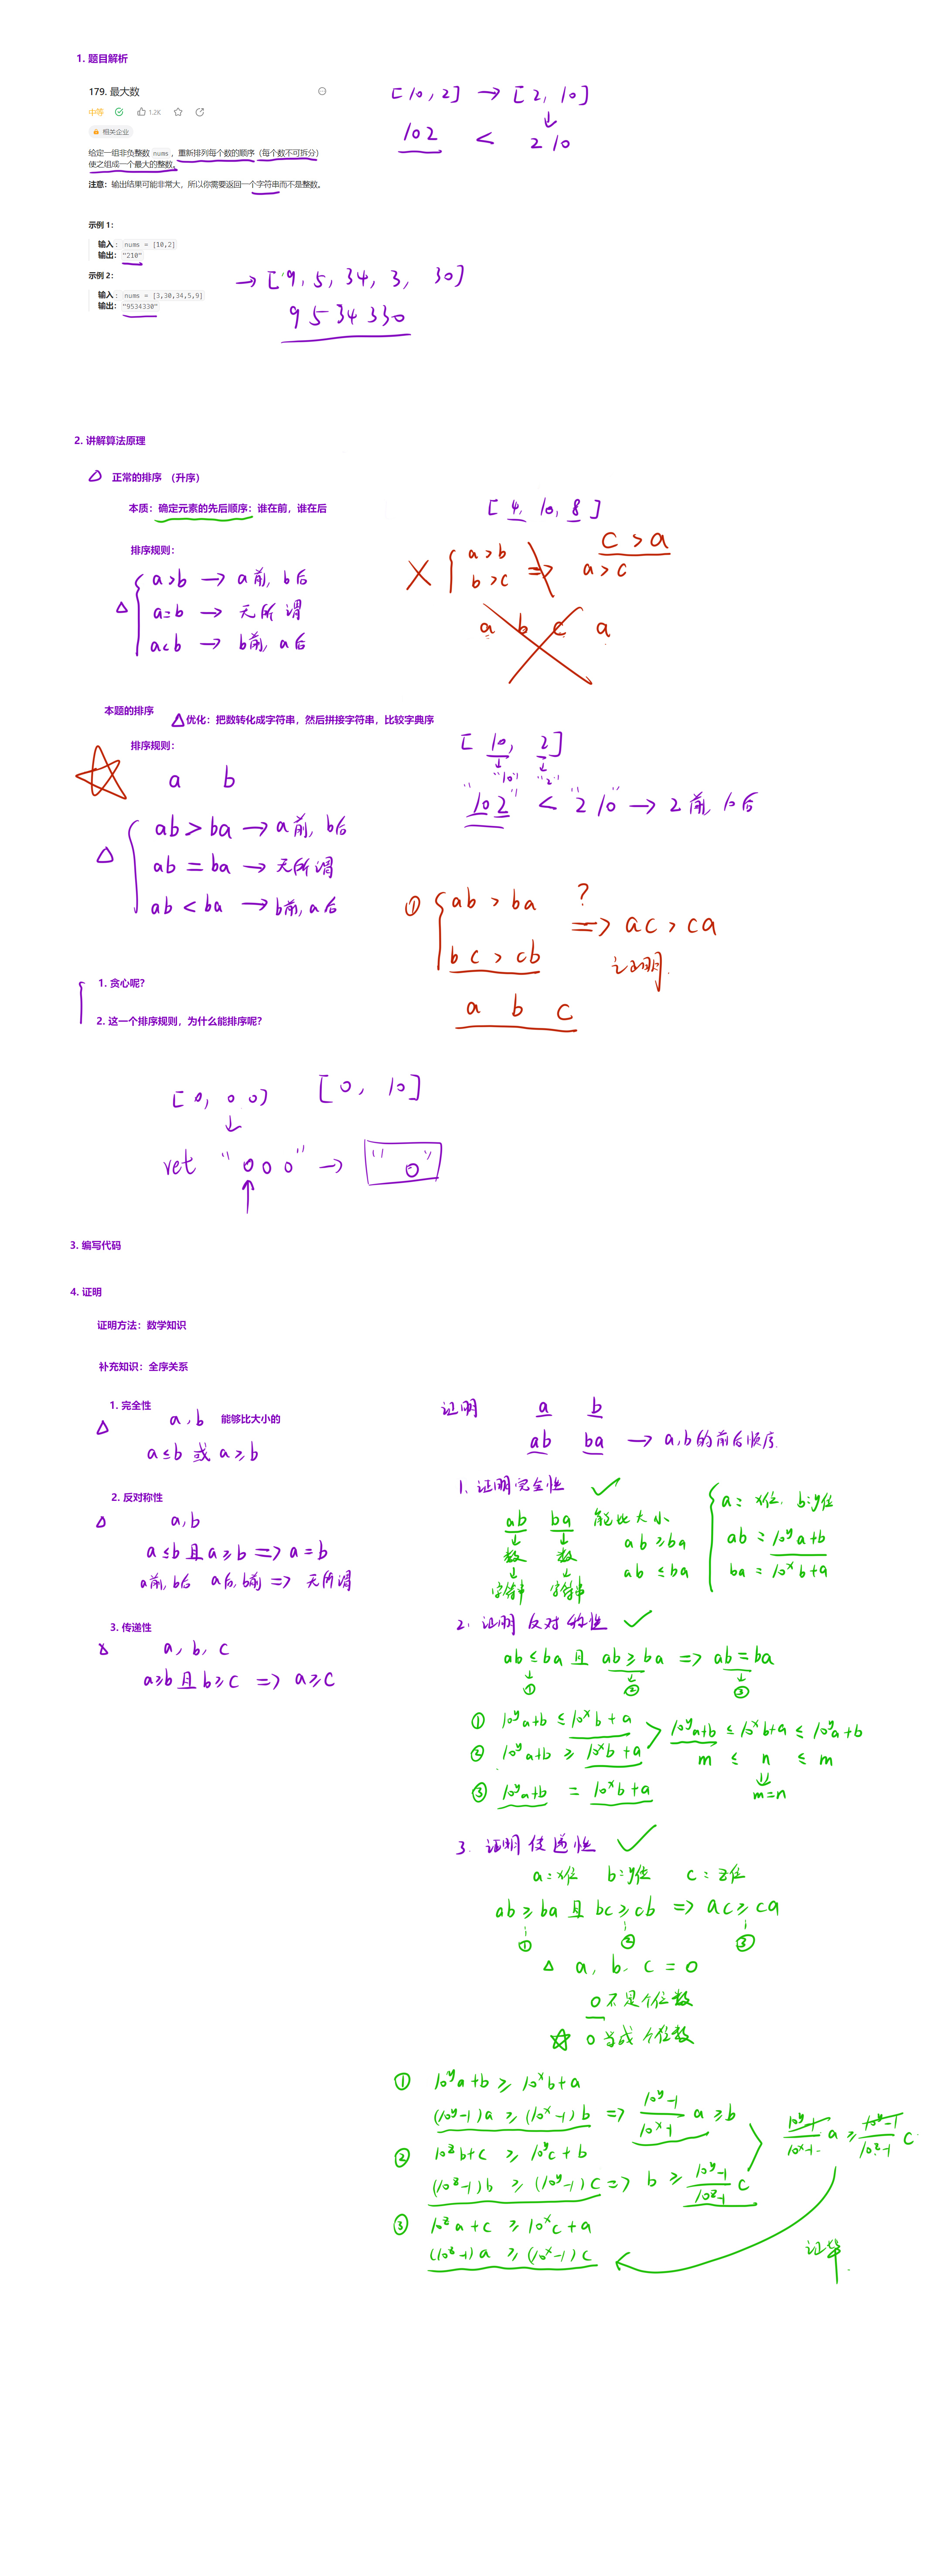 1. 题目解析
179. 最大数
中等 1.2K
相关企业
给定一组非负整数 nums，重新排列每个数的顺序（每个数不可拆分）
使之组成一个最大的整数。
注意：输出结果可能非常大，所以你需要返回一个字符串而不是整数。
[10, 2] → [2, 10]
↓
102 < 210
示例 1：
输入：nums = [10,2]
输出："210"
示例 2：
输入：nums = [3,30,34,5,9]
输出："9534330"
→ [9, 5, 34, 3, 30]
9534330
2. 讲解算法原理
正常的排序 （升序）
本质：确定元素的先后顺序：谁在前，谁在后
排序规则：
a>b → a前, b后
a=b → 无所谓
a<b → b前, a后
[4, 10, 8]
c > a
a>b
b>c
=> a>c
a b c a
本题的排序
△优化：把数转化成字符串，然后拼接字符串，比较字典序
排序规则：
a b
ab > ba → a前, b后
ab = ba → 无所谓
ab < ba → b前, a后
[10, 2]
↓ ↓
"10" "2"
"102" < "210" → 2前, 10后
① ab > ba
bc > cb
?
=> ac > ca
证明.
a b c
1. 贪心呢？
2. 这一个排序规则，为什么能排序呢？
[0, 0 0] [0, 10]
↓
ret "000" → "0"
↑
3. 编写代码
4. 证明
证明方法：数学知识
补充知识：全序关系
1. 完全性
a, b 能够比大小的
a≤b 或 a≥b
2. 反对称性
a, b
a≤b 且 a≥b => a=b
a前, b后 a后, b前 => 无所谓
3. 传递性
a, b, c
a≥b 且 b≥c => a≥c
证明 a b
ab ba → a,b的前后顺序.
1. 证明完全性 ✓
ab ba 能比大小
↓ ↓
数 数
↓ ↓
字符串 字符串
ab ≥ ba
ab ≤ ba
a: x位, b: y位
ab = 10^y a+b
ba = 10^x b+a
2. 证明反对称性 ✓
ab ≤ ba 且 ab ≥ ba => ab = ba
↓ ↓ ↓
① ② ③
① 10^y a+b ≤ 10^x b+a
② 10^y a+b ≥ 10^x b+a
10^y a+b ≤ 10^x b+a ≤ 10^y a+b
m ≤ n ≤ m
⇓
m=n
③ 10^y a+b = 10^x b+a
3. 证明传递性 ✓
a: x位 b: y位 c: z位
ab ≥ ba 且 bc ≥ cb => ac ≥ ca
① ② ③
△ a, b, c = 0
0不是个位数
☆ 0当成个位数
① 10^y a+b ≥ 10^x b+a
(10^y-1)a ≥ (10^x-1)b => (10^y-1)/(10^x-1) a ≥ b
② 10^z b+c ≥ 10^y c+b
(10^z-1)b ≥ (10^y-1)c => b ≥ (10^y-1)/(10^z-1) c
(10^y-1)/(10^x-1) a ≥ (10^y-1)/(10^z-1) c
③ 10^z a+c ≥ 10^x c+a
(10^z-1)a ≥ (10^x-1)c
证毕.